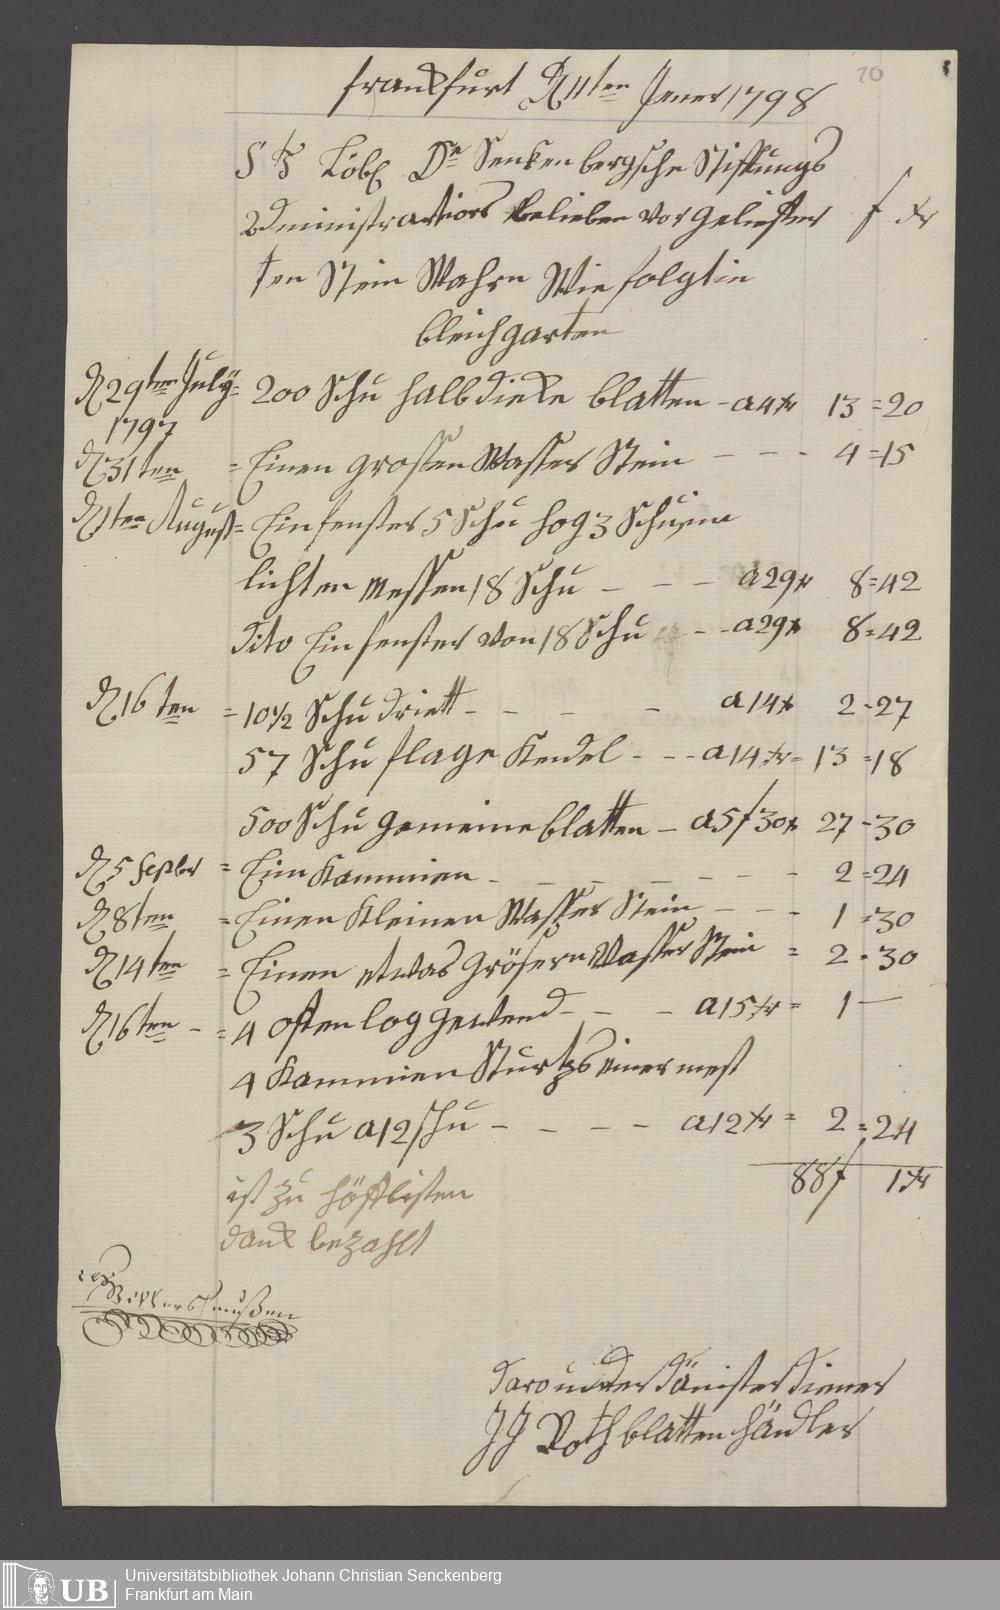 20
franckfurt D 11ten Jener 1798
Löbl Dr Senkenbergsche Stiftungs
Administrations belieben vor geliefter f xr
ten Stein Wahrn Wie folgt in
bleichgarten
D 29ten July = 200 Schu halb dicke blatten - a 4 xr 13 = 20
1797
D 31ten = Einen grosen Wasser Stein - - - 4 = 15
D 1ten August = Ein fenster 5 Schu hog 3 Schu im
lichten messen 18 Schu - - - a 29 x 8 = 42
Dito Ein fenster von 18 Schu - - a 29 x 8 = 42
D 16ten = 10 1/2 Schu driett - - - - a 14 x 2 - 27
57 Schu flage Kendel - - - a 14 xr = 13 = 18
500 Schu gemeine blatten - a 5 f 30 x 27 - 30
D 5 Sepber = Eim Kammien - - - - - - - 2 = 24
D 8ten = Einen Kleinen Wasser Stein - - - 1 = 30
D 14ten = Einen etwas grösern Wasser Stein = 2 - 30
D 16ten - = 4 ofen log gewend - - - a 15 xr = 1 —
4 Kammien Sturtzs einer mest
3 Schu a 12 schu - - - - a 12 xr = 2 = 24
88 f 1 xr
ist zu höflisten
danck bezahlt
dero under dänister diener
JJ Roth blatten händler
UB
Universitätsbibliothek Johann Christian Senckenberg
Frankfurt am Main